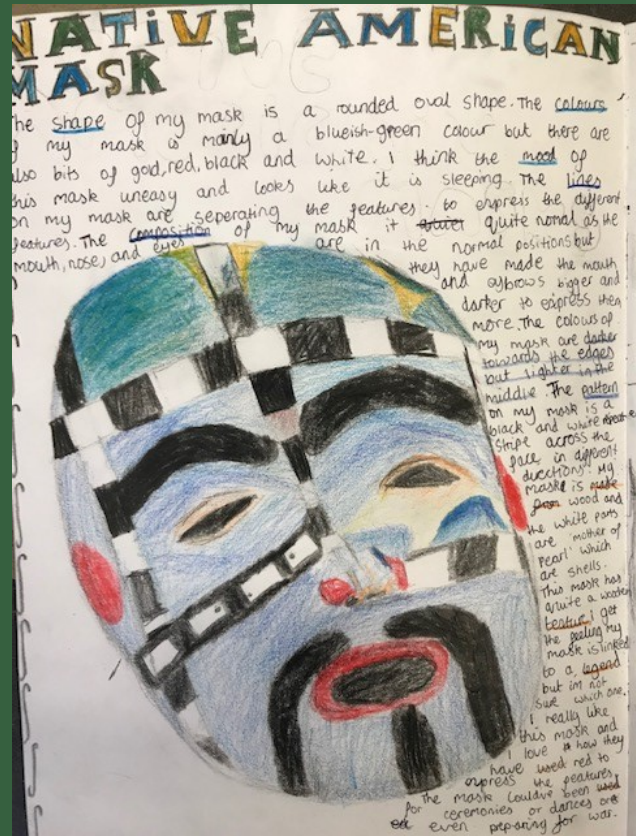 NATIVE AMERICAN
MASK
The shape of my mask is a rounded oval shape. The colours
of my mask is mainly a blueish-green colour but there are
also bits of gold, red, black and white. I think the mood of
this mask uneasy and looks like it is sleeping. The lines
on my mask are seperating the features. to express the different
features. The composition of my mask it quite nomal as the
mouth, nose, and eyes are in the normal positions but
they have made the mouth
and eybrows bigger and
darker to express them
more. The colours of
my mask are darker
towards the edges
but lighter in the
middle. The pattern
on my mask is a
black and white
stripe across the
face in different
directions. My
mask is made
from wood and
the white parts
are 'mother of
pearl' which
are shells.
This mask has
quite a wooden
texture i get
the feeling my
mask is linked
to a legend
but im not
sure which one.
I really like
this mask and
I love how they
have used red to
express the features.
The mask couldve been used
for ceremonies or dances or
even preparing for war.